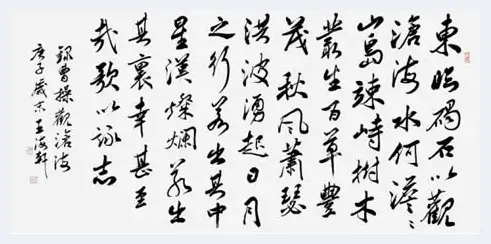 東臨碣石以觀
滄海水何澹〻
山島竦峙樹木
叢生百草豐
茂秋風蕭瑟
洪波湧起日月
之行若出其中
星漢燦爛若出
其裏幸甚至
哉歌以詠志
錄曹操觀滄海
庚子歲末王海軒